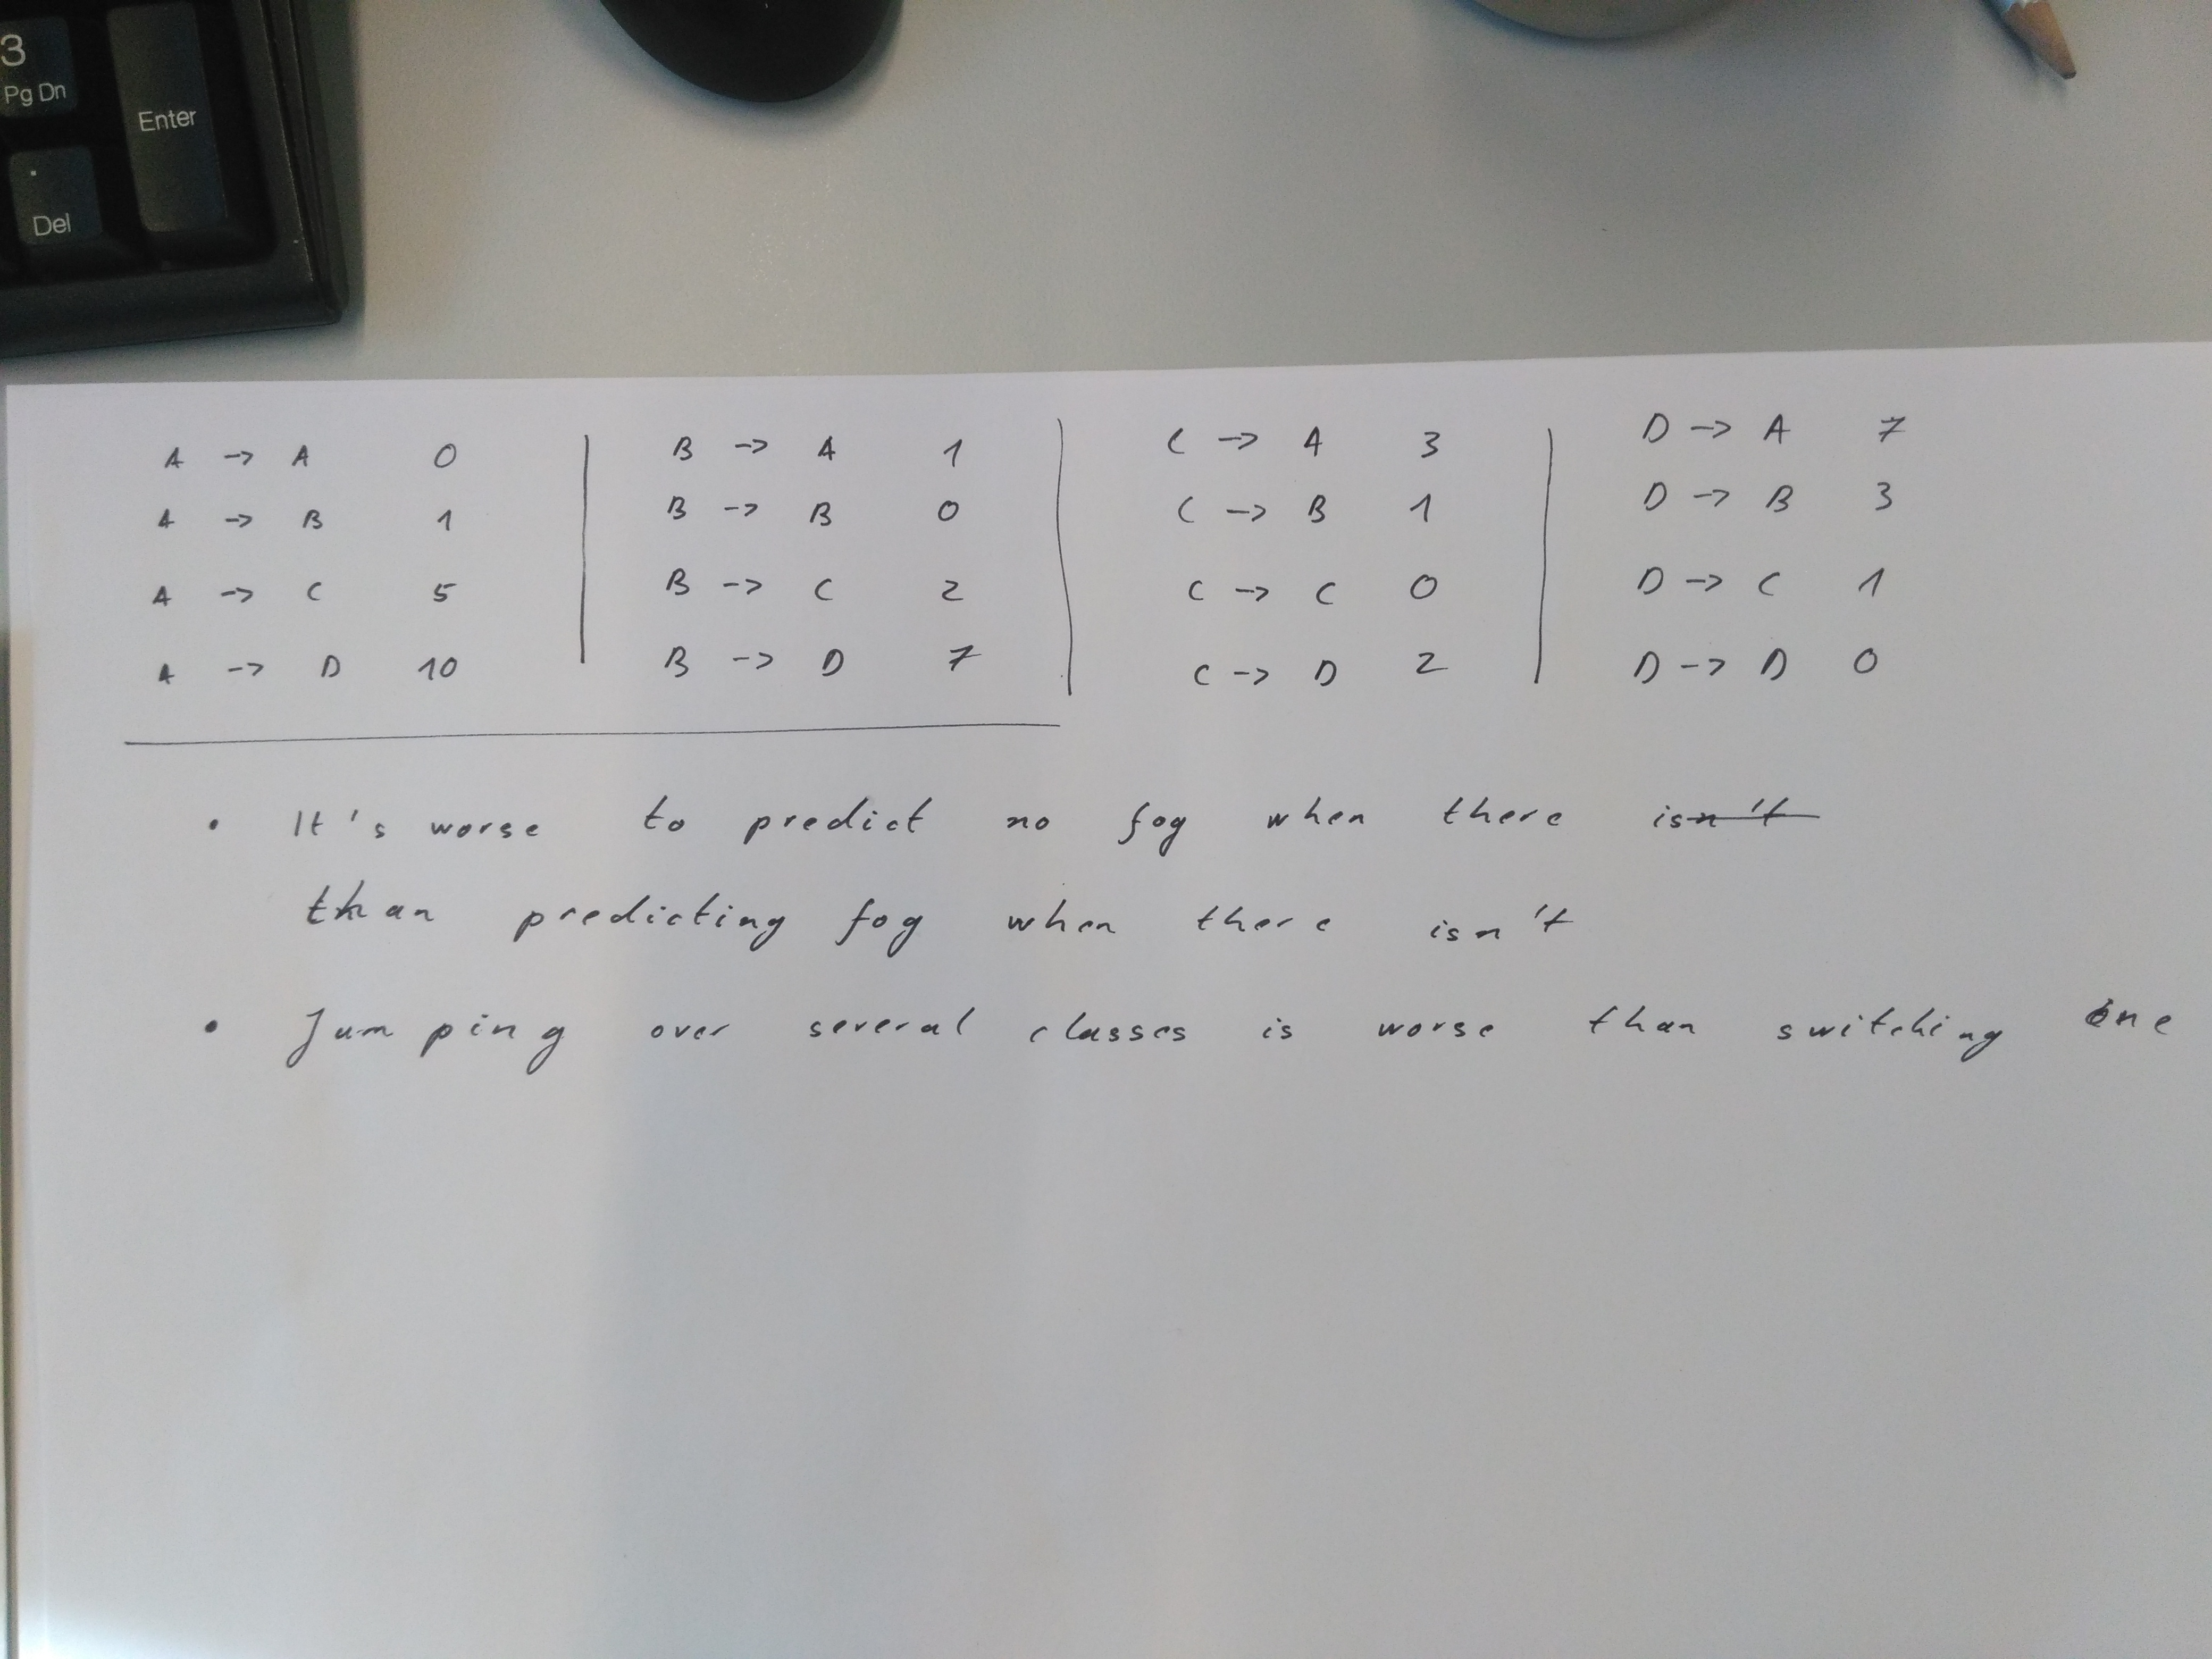 3
Pg Dn
Enter
.
Del
A -> A 0 | B -> A 1 | C -> A 3 | D -> A 7
A -> B 1 | B -> B 0 | C -> B 1 | D -> B 3
A -> C 5 | B -> C 2 | C -> C 0 | D -> C 1
A -> D 10 | B -> D 7 | C -> D 2 | D -> D 0
• It's worse to predict no fog when there is
than predicting fog when there isn't
• Jumping over several classes is worse than switching one